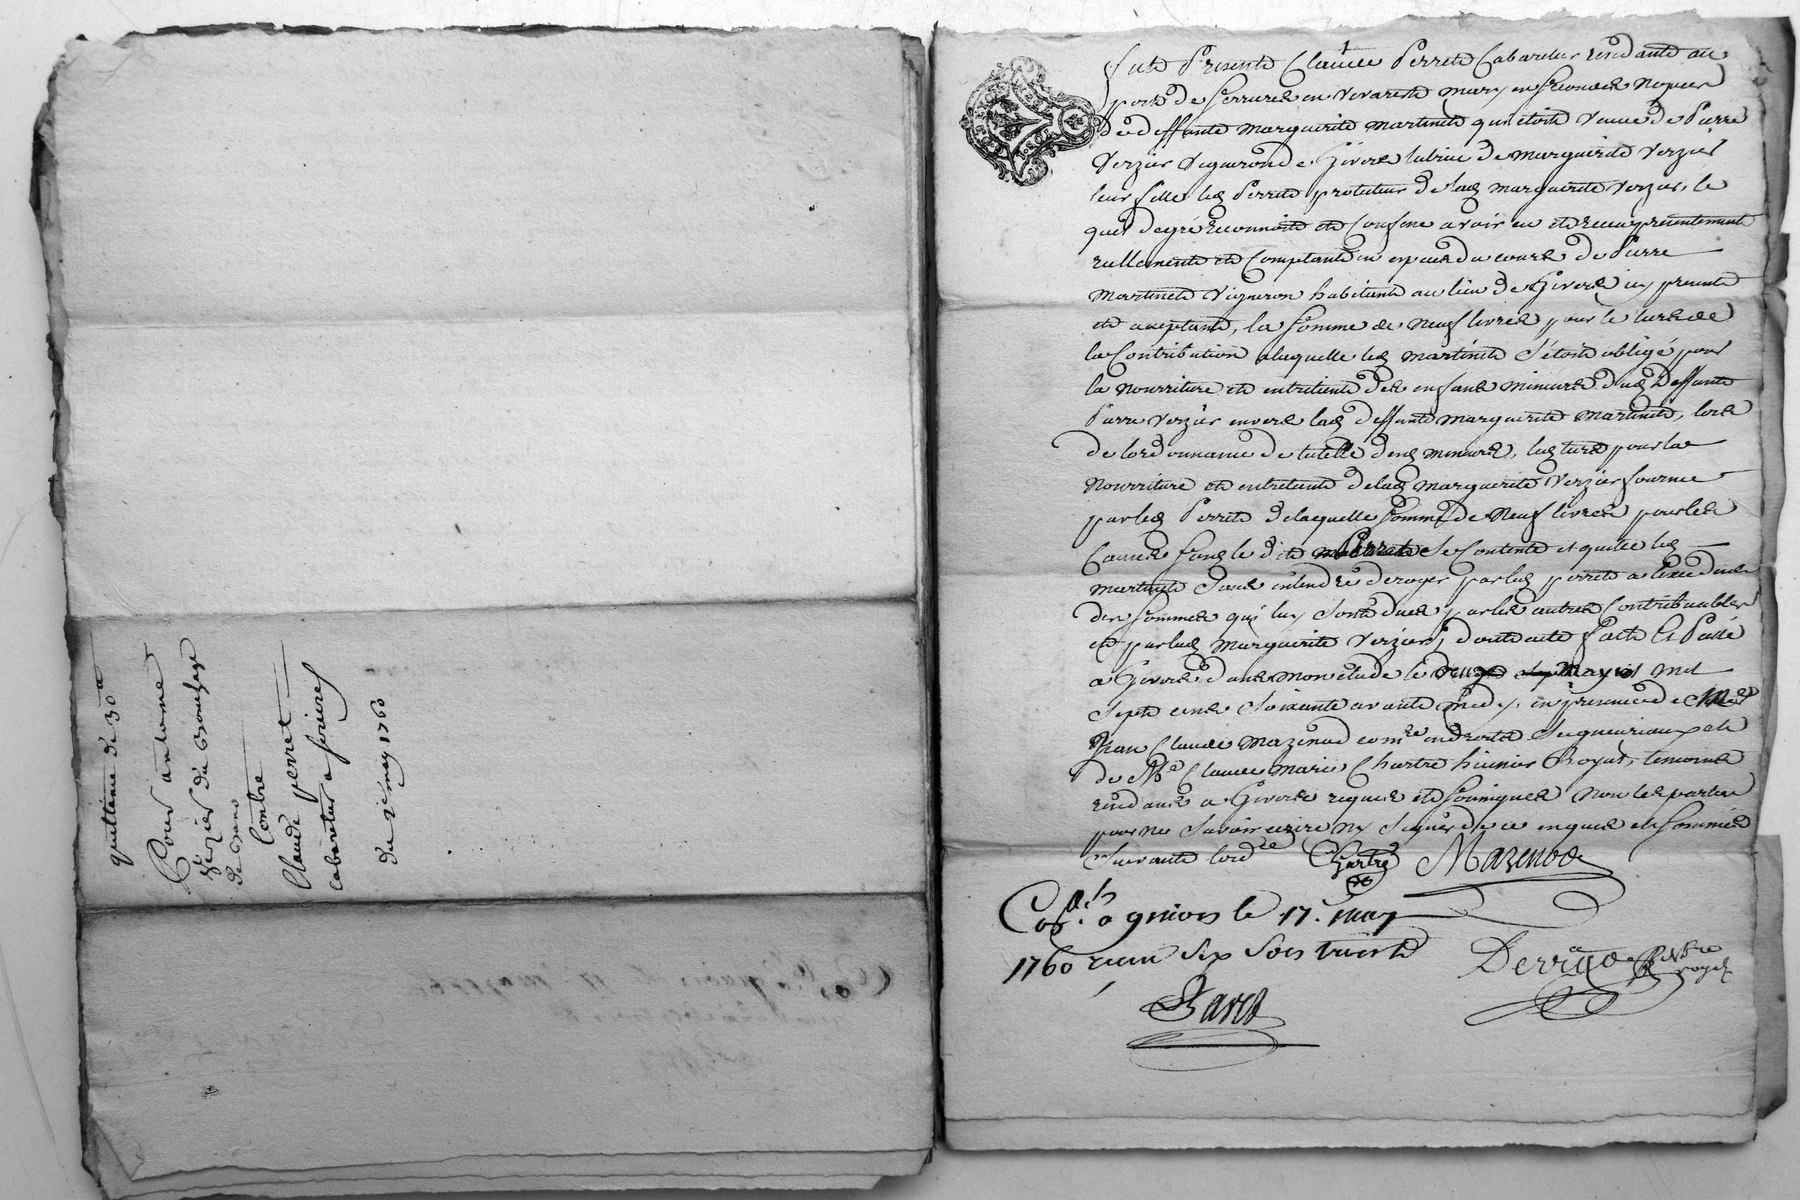 quittance de 30 #
Pour antoine
verzier du
de
Contre
Claude perret
cabaretier a serrieres
du 2e may 1760
Fut Presente Claude Perrete Cabaretier residante au
porte de serriered en vivarestz mary en secondes nopces
de deffante marguerite martinete qui etoite veuve de Pierre
Verzier vigneron de Givord tutrice de marguerite Verzier
leur fille led Perrete protuteur de lad marguerite verzier, le
quel de gré reconnoite ete Confesse avoir eu ete recu presentemente
reellemente ete Comptante en especes du courd de Pierre
Martinete vigneron habitante au lieu de Givord icy presente
ete acceptante, la somme de neuf livred pour le tiers de
la Contribution a laquelle led martinete s'étoite obligé pour
la nourriture ete entretiente des enfans mineurd dud Deffante
Pierre verzier enverd lad deffante marguerite martinete, lord
de lordonnance de tutelle desd mineurd, led tierd pour la
nourriture ete entretiente de lad marguerite verzier fournie
par led Perrete de laquelle somme de neuf livred pour led
Caused susd le dite Perrete se Contente et quitte led
martinete sans entendre deroger par led perrete a
des sommes qui luy sonte dues par les autres Contribuables
ete par lad marguerite verzier, donte acte Faite Et Passé
a Givord dans mon etude le may mil
septe cens soixante avante midy, en presence de
Jean Claude Mazenod comre en droits seigneuriaux ete
de Me Claude Marie Chartre huissier Royal, temoins
residans a Givord requis ete soussignes non led parties
pour ne savoir ecrire ny signer de ce enquis ete sommées
suivante lordce Chartre Mazenod
Colé. a givors le 17. may
1760 recu six sols
Devigde Nre
royal